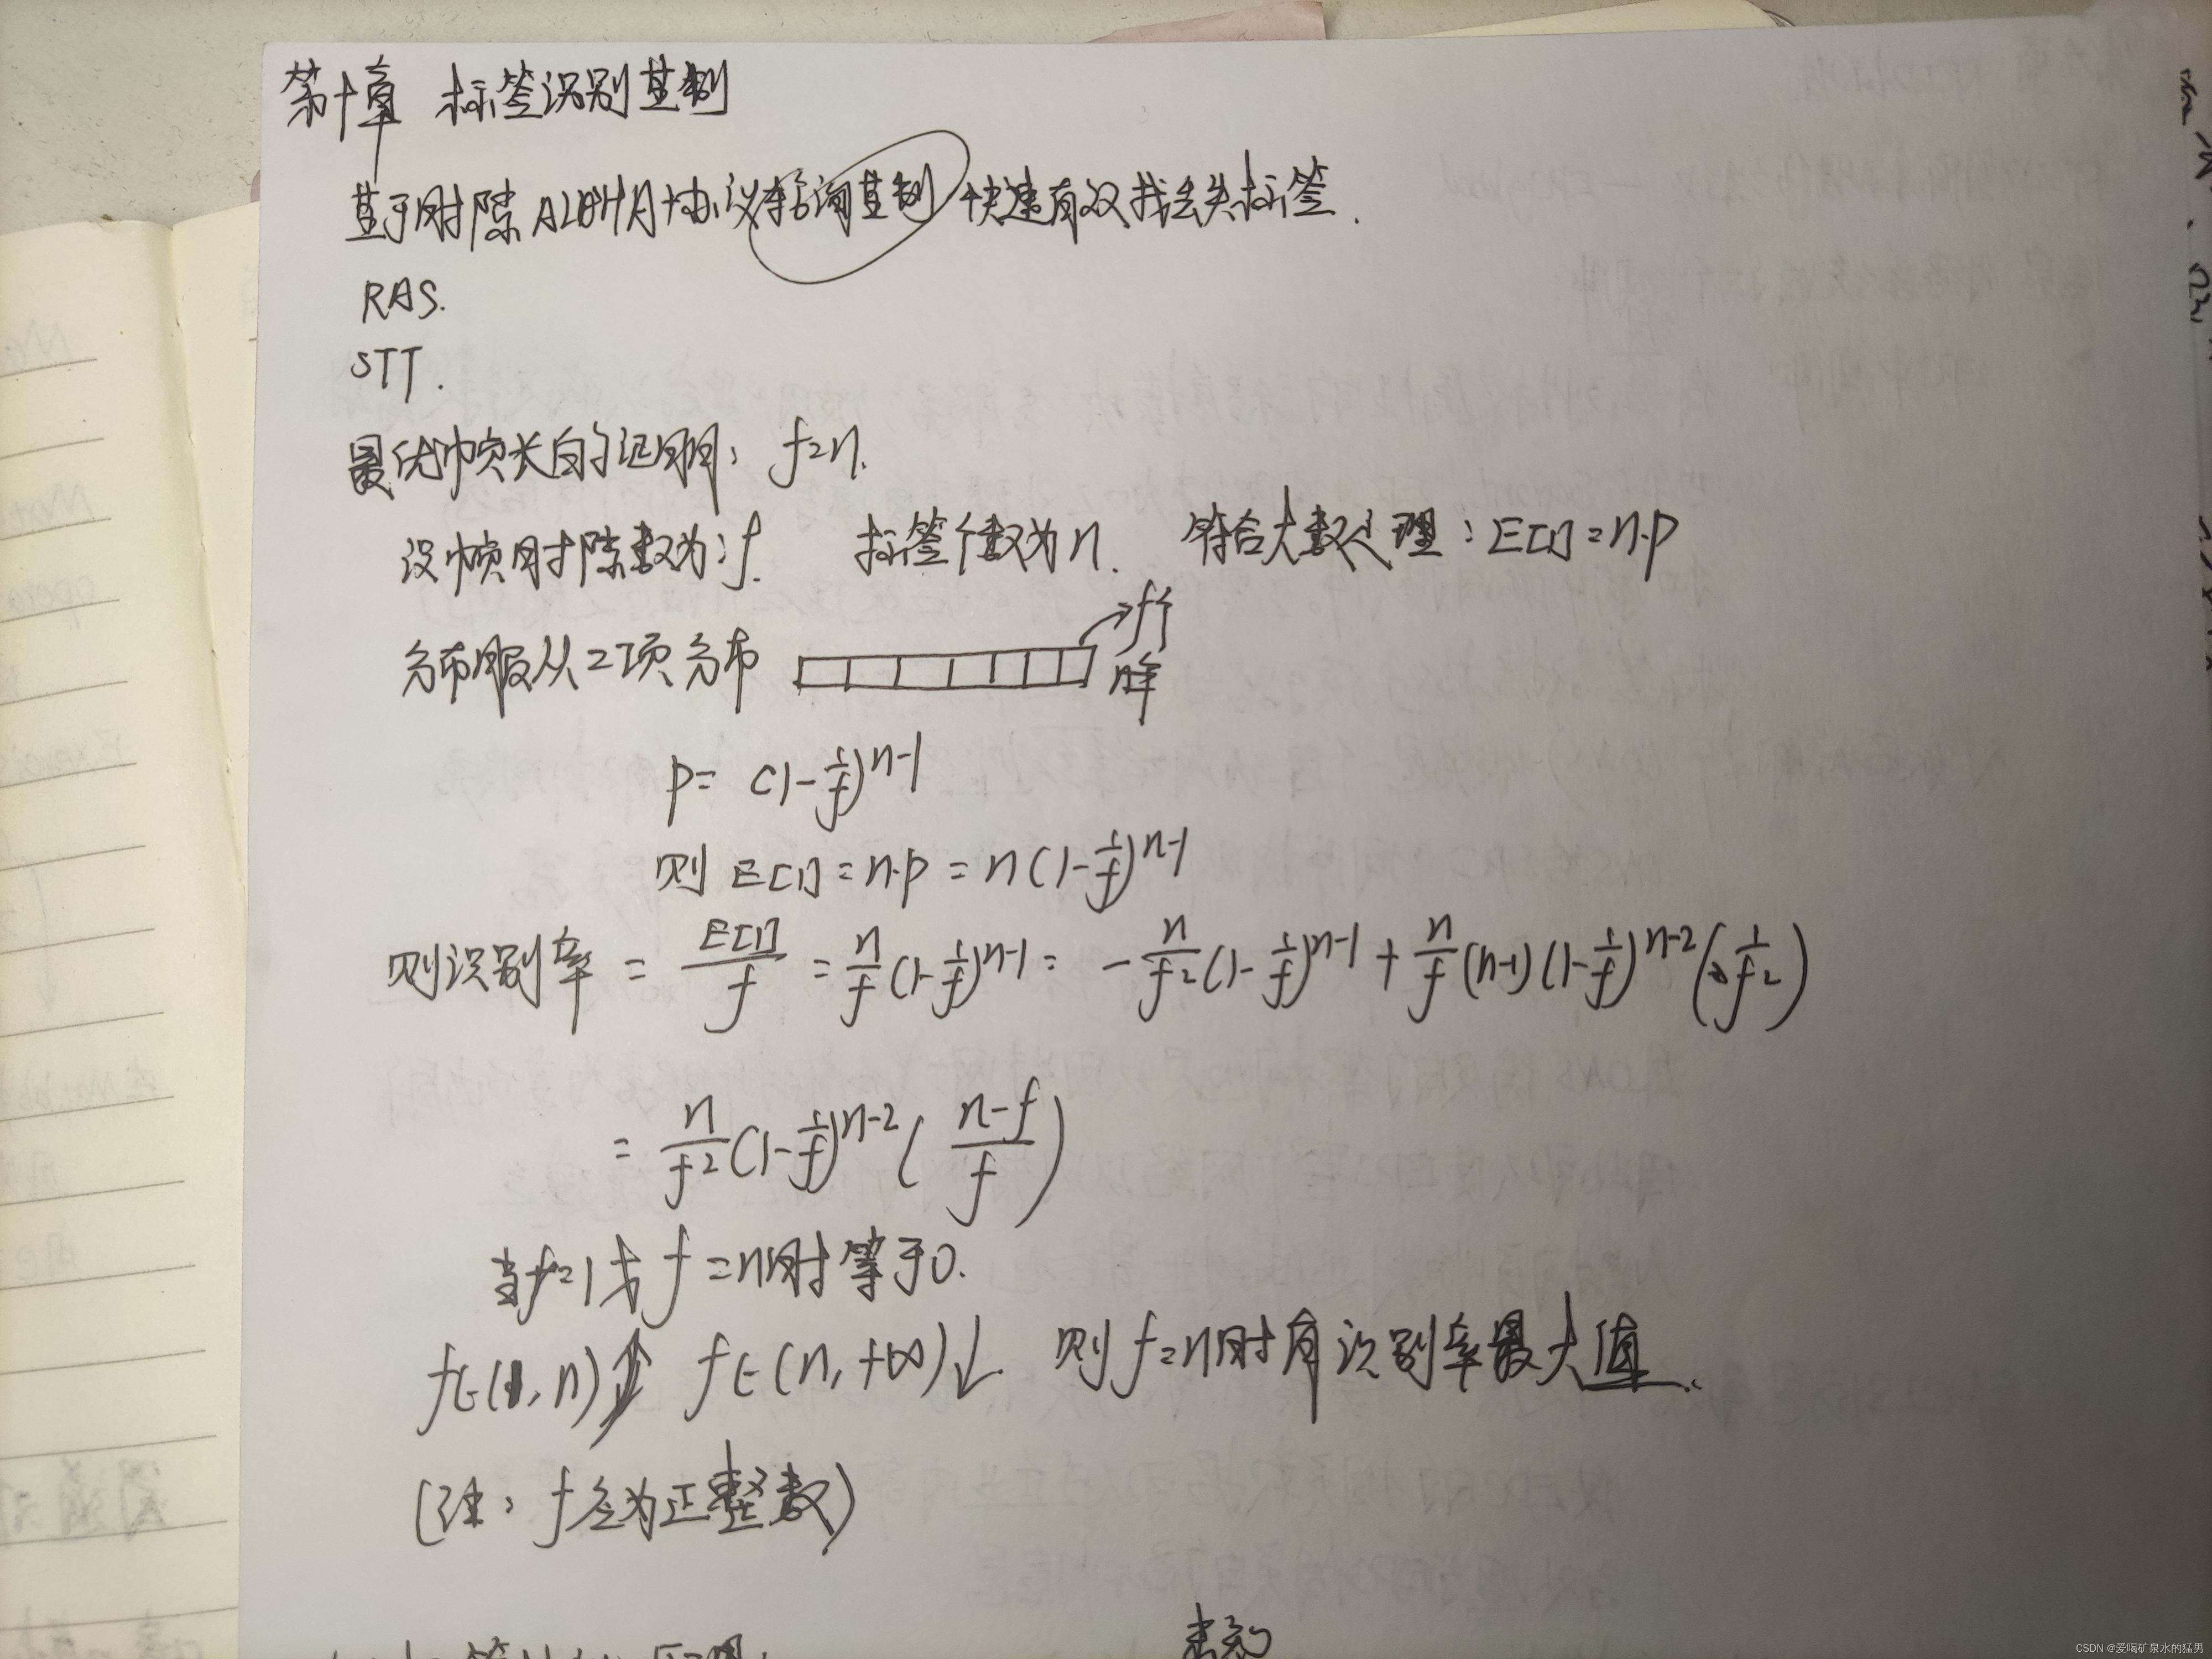 第十章 标签识别基制
基于时隙ALOHA协议轮询基制 快速有效找丢失标签.
RAS.
STT.
最优帧长的证明: f=n.
设帧时隙数为:f. 标签个数为n. 符合大数定理: E[1]=n·p
分布服从二项分布
f个
时隙
p= (1-1/f)^{n-1}
则 E[1]=n·p = n(1-1/f)^{n-1}
则识别率 = E[1]/f = n/f (1-1/f)^{n-1} = -n/f² (1-1/f)^{n-1} + n/f (n-1)(1-1/f)^{n-2}(1/f²)
= n/f² (1-1/f)^{n-2} ((n-f)/f)
当f=1或f=n时等于0.
f∈(1,n)↑ f∈(n,+∞)↓. 则f=n时有识别率最大值.
(注: f应为正整数)
CSDN @爱喝矿泉水的猛男